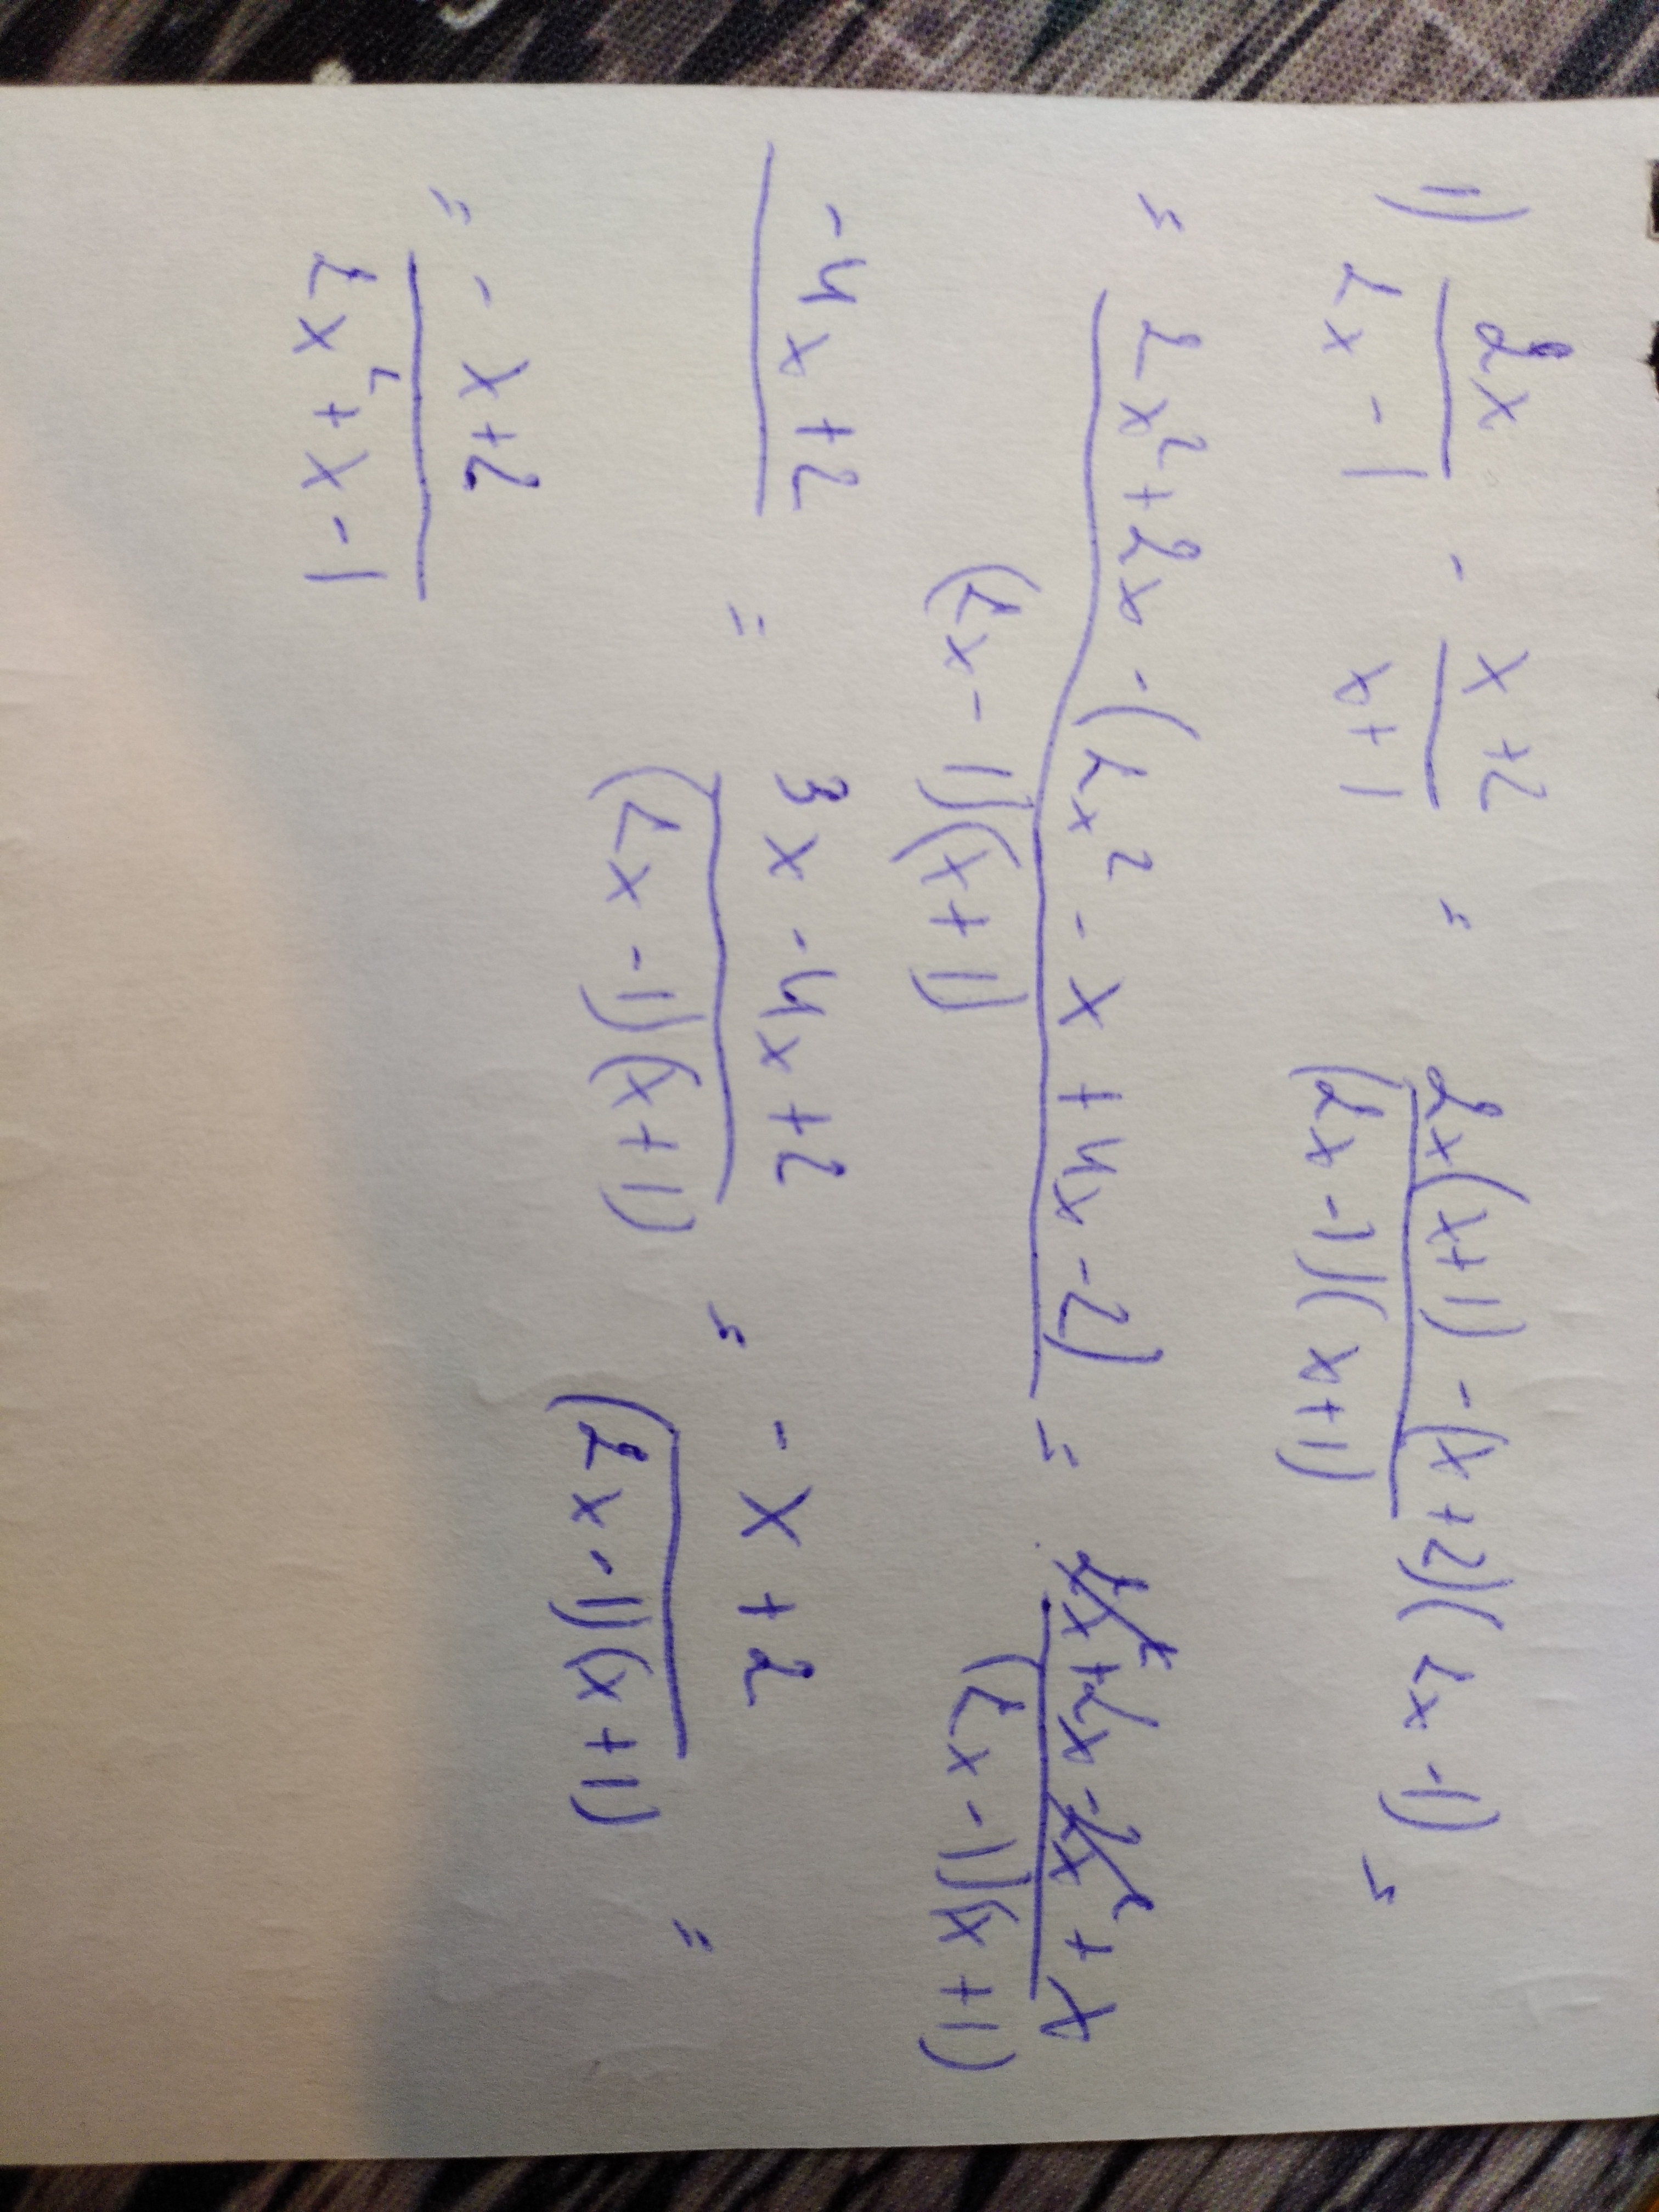 1) 2x/(2x - 1) - (x + 2)/(x + 1) = (2x(x+1) - (x+2)(2x - 1))/((2x - 1)(x+1)) =
= (2x² + 2x - (2x² - x + 4x - 2))/((2x - 1)(x + 1)) = (2x² + 2x - 2x² + x
- 4x + 2)/((2x - 1)(x + 1)) = (3x - 4x + 2)/((2x - 1)(x + 1)) = (- x + 2)/((2x - 1)(x + 1)) =
= (- x + 2)/(2x² + x - 1)